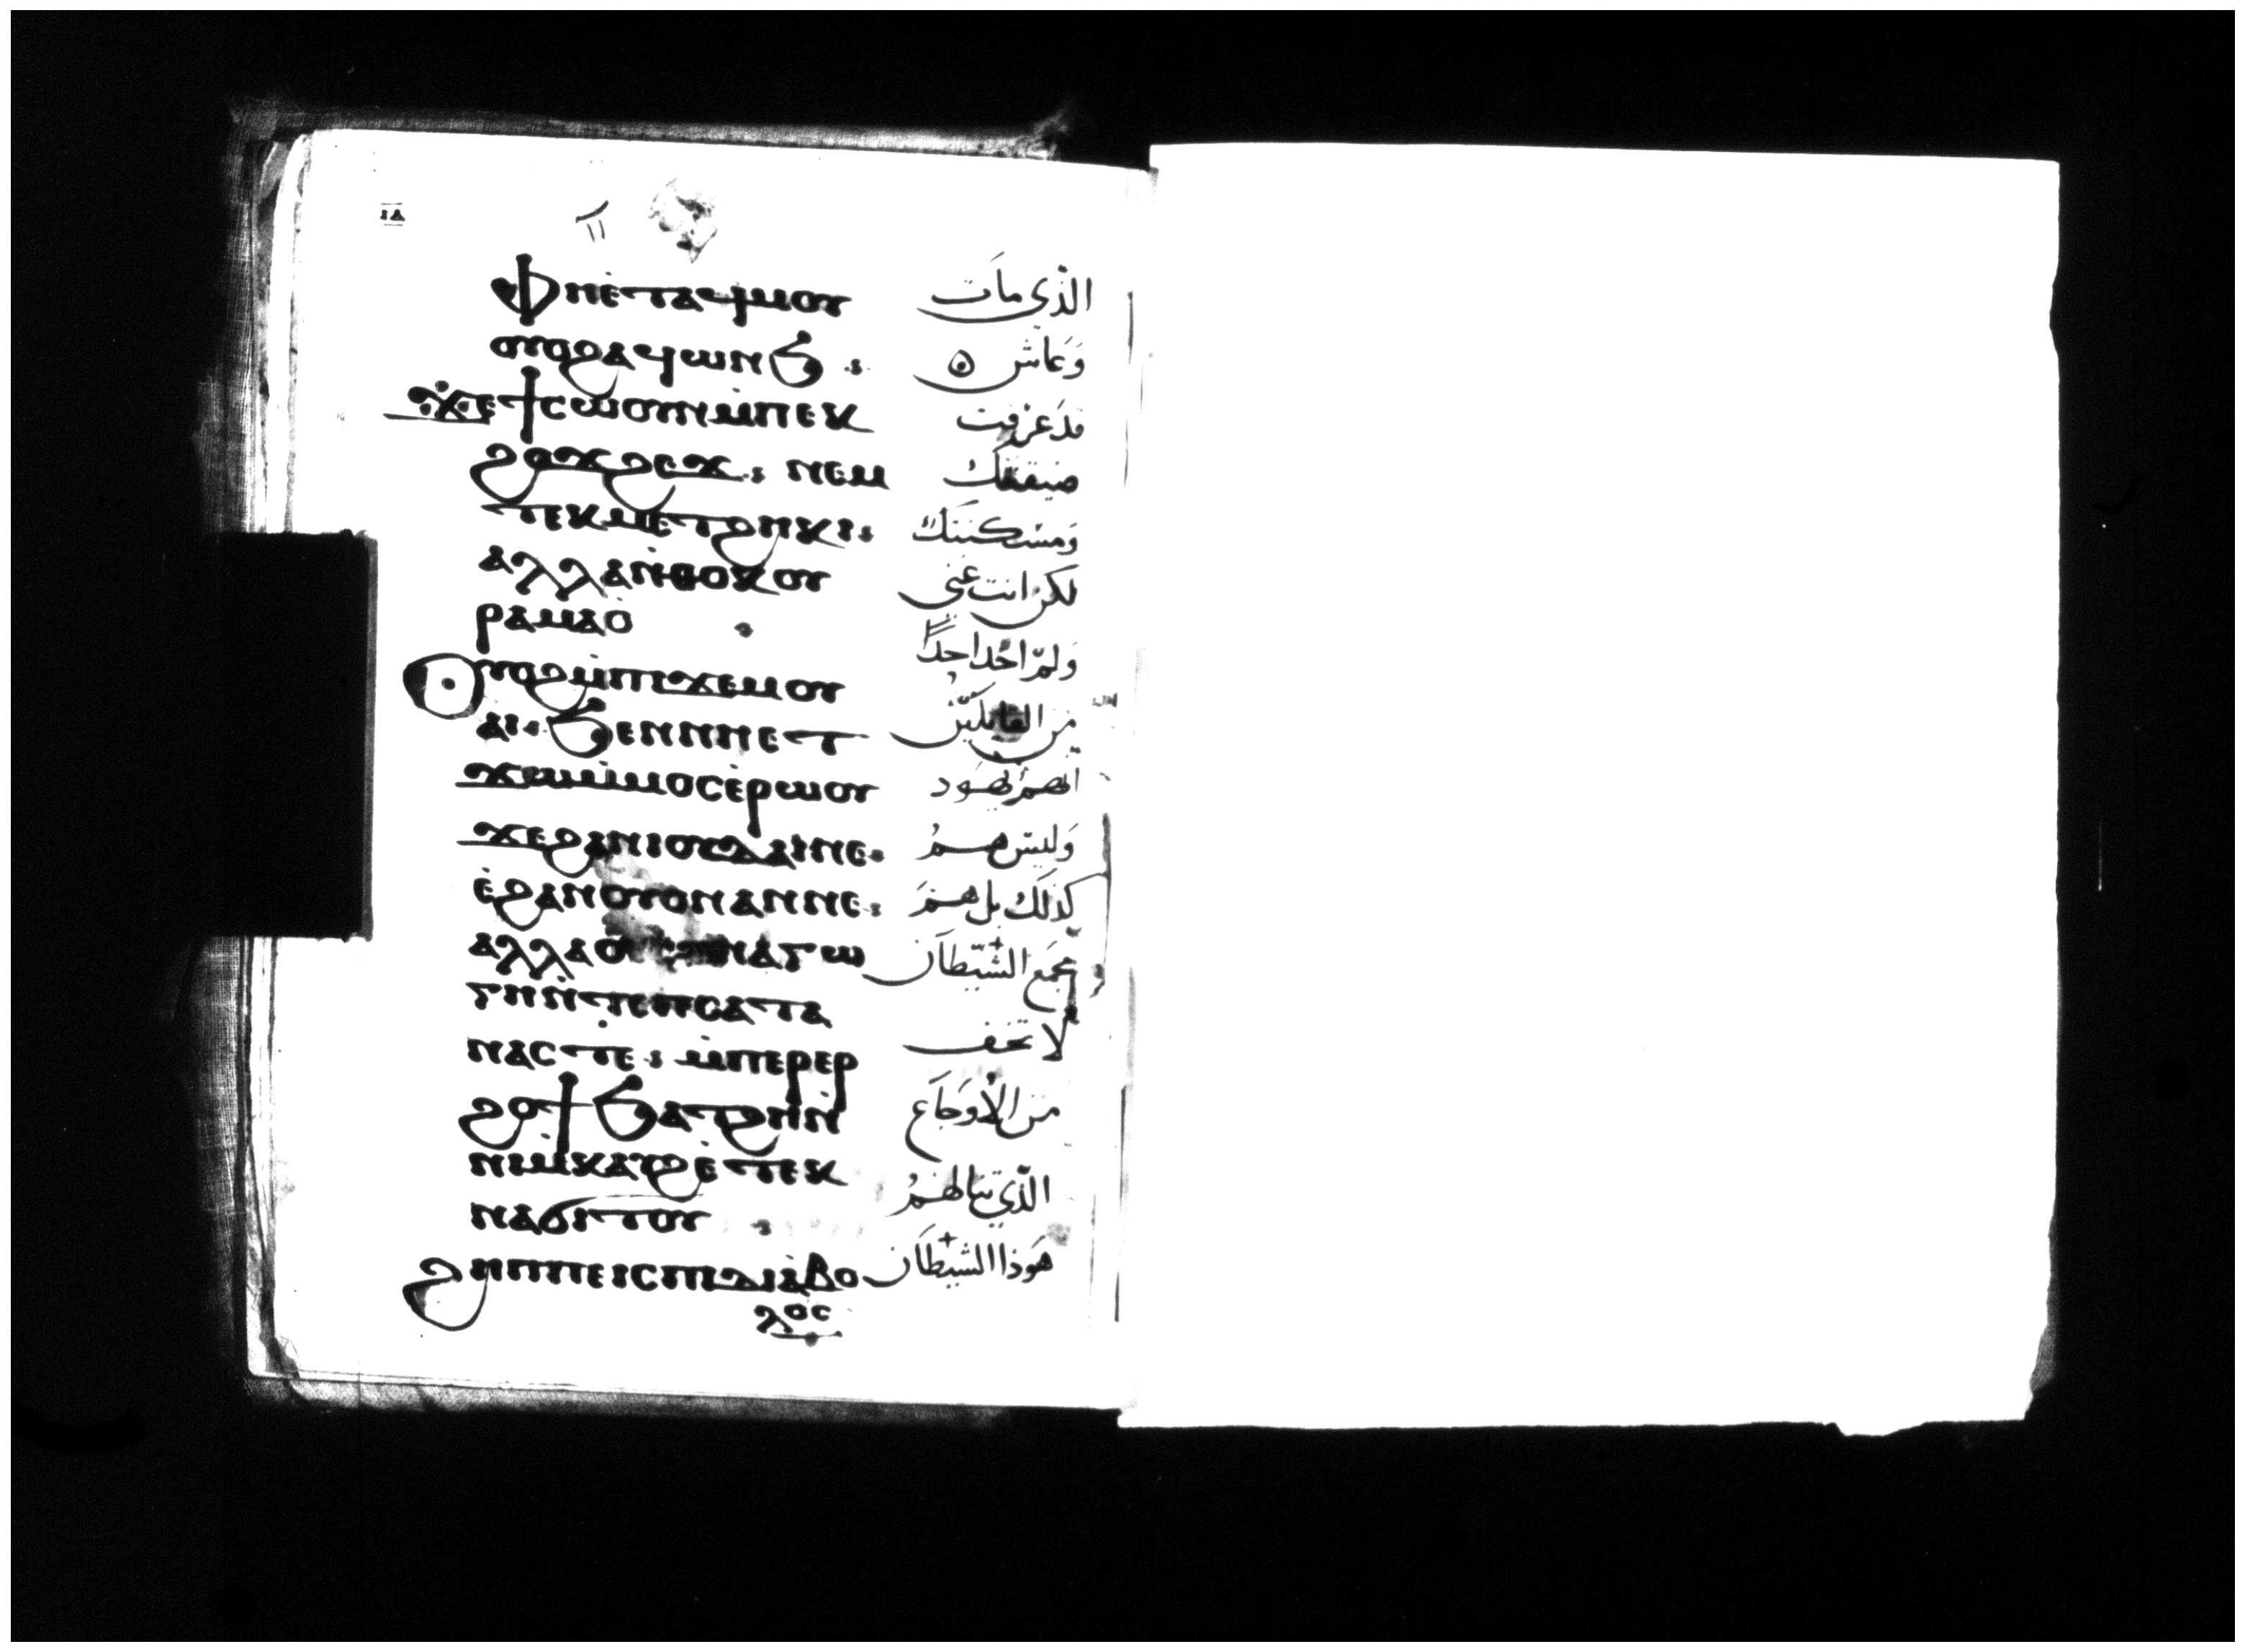 ⲓⲇ
ⲫⲏⲉ̇ⲧⲁϥⲙⲟⲩ الذي مات
ⲟⲩⲟϩⲁϥⲱⲛϧ وعاش
ϫⲉϯⲥⲱⲟⲩⲛⲙ̇ⲡⲉⲕ قد عرفت
ϩⲟϫϩⲉϫ: ⲛⲉⲙ ضيقتك
ⲧⲉⲕⲙⲉⲧϩⲏⲕⲓ: ومسكنتك
ⲁⲗⲗⲁⲛ̇ⲑⲟⲕⲟⲩ لكن انت غني
ⲣⲁⲙⲁⲟ̇
ⲟⲩⲟϩⲙ̇ⲡⲓϫⲉⲙⲟⲩ ولم احد احداً
ⲁⲓ ϧⲉⲛⲛⲏⲉⲧ من القايلين
ϫⲱⲙ̇ⲙⲟⲥⲉ̇ⲣⲱⲟⲩ انهم يهود
ϫⲉϩⲁⲛⲓⲟⲩⲇⲁⲓⲛⲉ وليس هم
ⲉ̇ϩⲁⲛⲟⲩⲟⲛⲁⲛⲛⲉ: كذلك بل هم
ⲁⲗⲗⲁ ⲛⲁⲅⲱ مجمع الشيطان
ⲅⲏⲛ̇ⲧⲉⲡⲥⲁⲧⲁ
ⲛⲁⲥⲧⲉ: ⲙ̇ⲡⲉⲣⲉⲣ لا تخف
ϩⲟϯϧⲁⲧϩⲏⲛ̇ من الاوجاع
ⲛⲓⲙ̇ⲕⲁⲩϩⲉ̇ⲧⲉⲕ الذي تنالهم
ⲛⲁϭⲓⲧⲟⲩ
ϩⲏⲡⲡⲉⲓⲥⲡⲓⲇⲓⲁ̇ⲃⲟ هوذا الشيطان
ⲗⲟⲥ